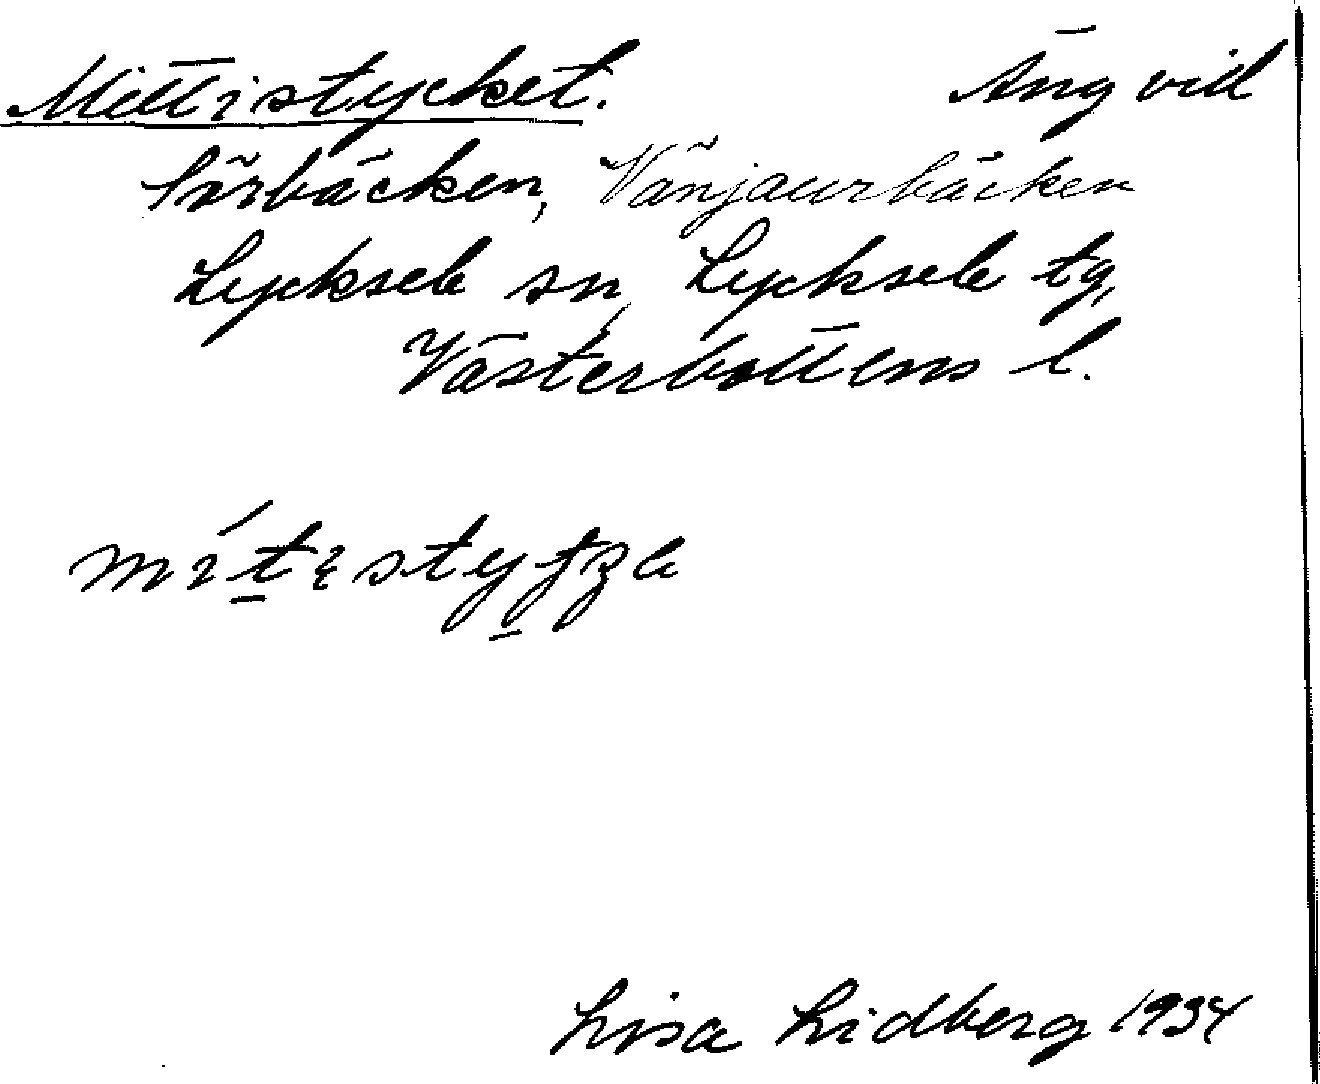 Mittistycket. Äng vid
Sörbäcken, Vänjaurbäcken
Lycksele sn, Lycksele tg,
Västerbottens l.
Lisa Lidberg 1934